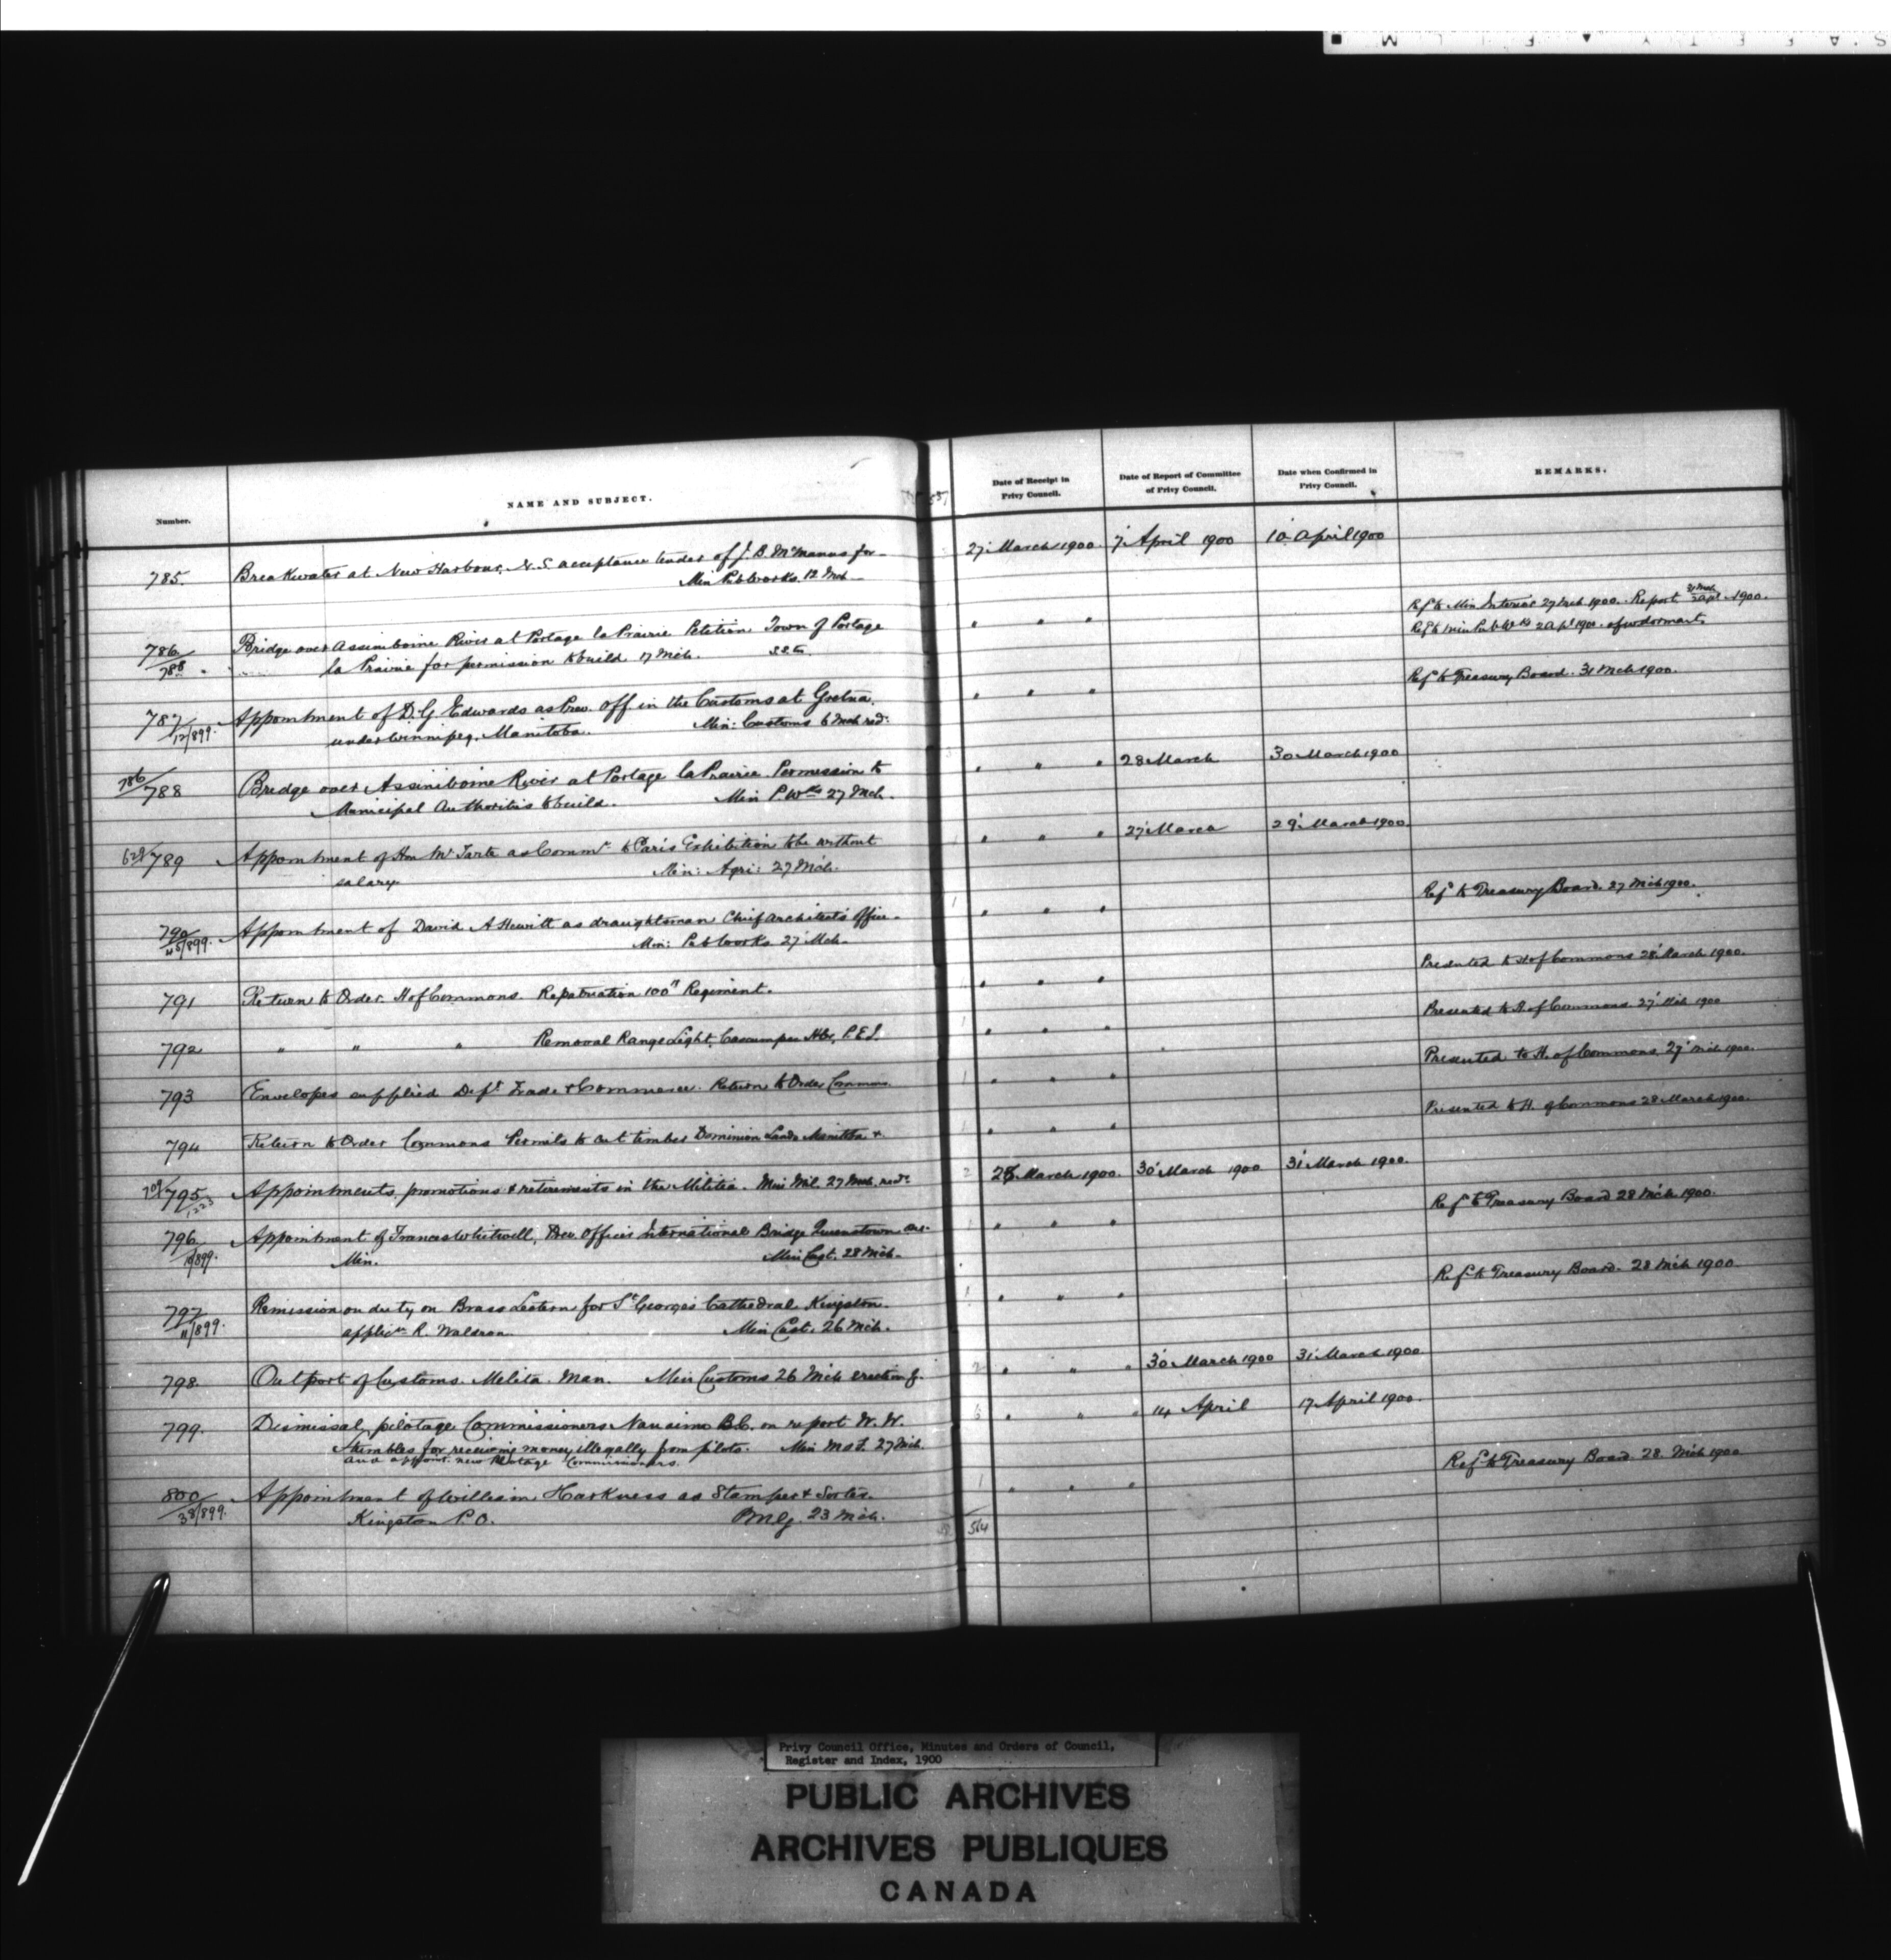 S A F E T Y ▲ F I L M ■
Number.
NAME AND SUBJECT.
Date of Receipt in
Privy Council.
Date of Report of Committee
of Privy Council.
Date when Confirmed in
Privy Council.
REMARKS.
785. Breakwater at New Harbour, N.S. acceptance tender of J. B. McManus for 27 March 1900 7 April 1900 10 April 1900
Min Pub Works. 12 Mch
Ref to Min Interior 27 Mch 1900. Report 1900.
786/788 Bridge over Assiniboine River at Portage la Prairie Petition Town of Portage " " "
Ref to Min Pub Wks 2 Apl 1900
la Prairie for permission to build 17 Mch.
Ref to Treasury Board. 31 Mch 1900.
787 17/899. Appointment of D. G. Edwards as Prev. Off. in the Customs at Gretna. " " "
under Winnipeg. Manitoba. Min: Customs 6 Mch red:
786/788 Bridge over Assiniboine River at Portage la Prairie. Permission to " " " 28 March 30 March 1900
Municipal Authorities to build. Min P. Wks 27 Mch.
628/789 Appointment of Hon Mr Tarte as Commr to Paris Exhibition to be without " " " 27 March 29 March 1900.
salary Min: Agri: 27 Mch.
Refd to Treasury Board. 27 Mch 1900.
790 45/899. Appointment of David A Hewitt as draughtsman Chief Architect's Office. " " "
Min: Pub Works. 27 Mch.
Presented to H of Commons 28 March 1900.
791 Return to Order. H of Commons. Repatriation 100th Regiment. " " "
Presented to H. of Commons. 27 Mch 1900
792 " " " Removal Range Light, Cascumpec Hbr, P.E.I. " " "
Presented to H. of Commons. 27 Mch 1900.
793 Envelopes supplied Dept Trade & Commerce. Return to Order Commons. " " "
Presented to H. of Commons 28 March 1900.
794 Return to Order Commons Permits to cut timber Dominion Lands Manitoba & " " "
709/795 1223 Appointments, promotions & retirements in the Militia. Min Mil. 27 Mch. red: 2 28 March 1900. 30 March 1900 31 March 1900.
Ref to Treasury Board 28 Mch. 1900.
796 /899. Appointment of Frances Whitwell, Prev. Officer International Bridge Queenstown Ont. 1 " " "
Min. Min Cust. 28 Mch.
Ref to Treasury Board. 28 Mch 1900
797 11/899. Remission on duty on Brass Lectern for St George's Cathedral Kingston. 1 " " "
applicn R. Waldron Min Cust. 26 Mch.
798. Outport of Customs. Melita. Man. Min Customs 26 Mch erection of. 2 " " " 30 March 1900 31 March 1900
799. Dismissal pilotage Commissioners Nanaimo B.C. on report W. W. " " " 14 April 17 April 1900.
Stumbles for receiving money illegally from pilots. Min M & F. 27 Mch.
and appoint. new Pilotage Commissioners.
Ref to Treasury Board. 28. Mch 1900
800 38/899. Appointment of William Harkness as Stamper & Sorter. 1 " " "
Kingston P.O. PMG. 23 Mch.
564
Privy Council Office, Minutes and Orders of Council,
Register and Index, 1900
PUBLIC ARCHIVES
ARCHIVES PUBLIQUES
CANADA